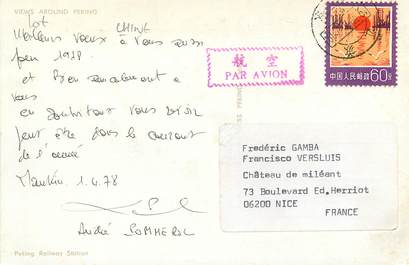 VIEWS AROUND PEKING
CHINE
Meilleurs voeux à vous aussi
pour 1978
et Bien amicalement à
vous
en souhaitant vous revoir
peut être dans le courant
de l'année
1.4.78
André
Peking Railway Station
航空
PAR AVION
PEKING
中国人民邮政 60分
Frédéric GAMBA
Francisco VERSLUIS
Château de miléant
73 Boulevard Ed.Herriot
06200 NICE
FRANCE